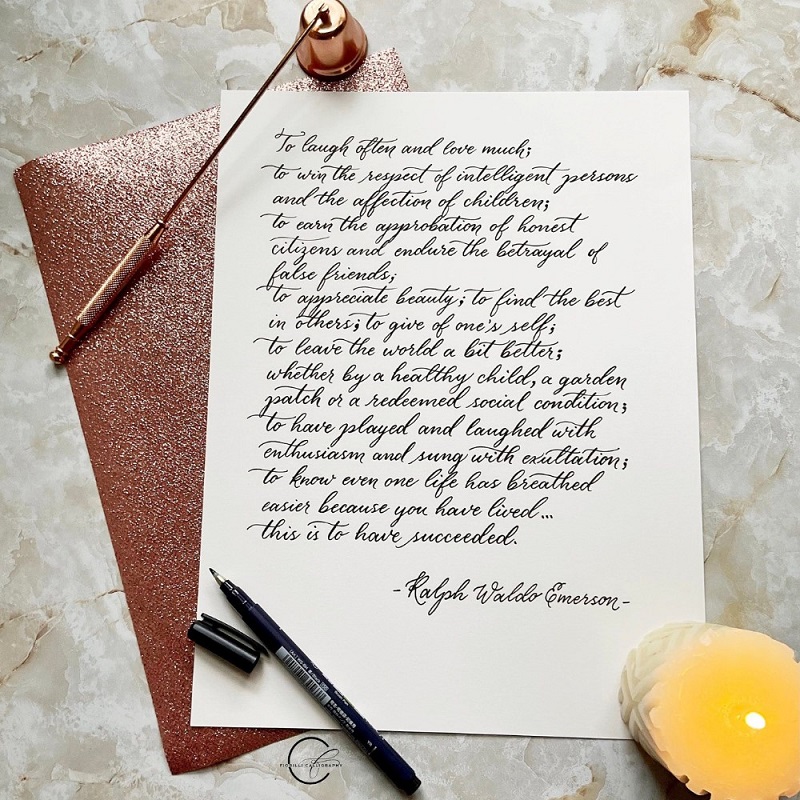 To laugh often and love much;
to win the respect of intelligent persons
and the affection of children;
to earn the approbation of honest
citizens and endure the betrayal of
false friends;
to appreciate beauty; to find the best
in others; to give of one's self;
to leave the world a bit better;
whether by a healthy child, a garden
patch or a redeemed social condition;
to have played and laughed with
enthusiasm and sung with exultation;
to know even one life has breathed
easier because you have lived...
this is to have succeeded.
- Ralph Waldo Emerson -
FIORILLI CALLIGRAPHY